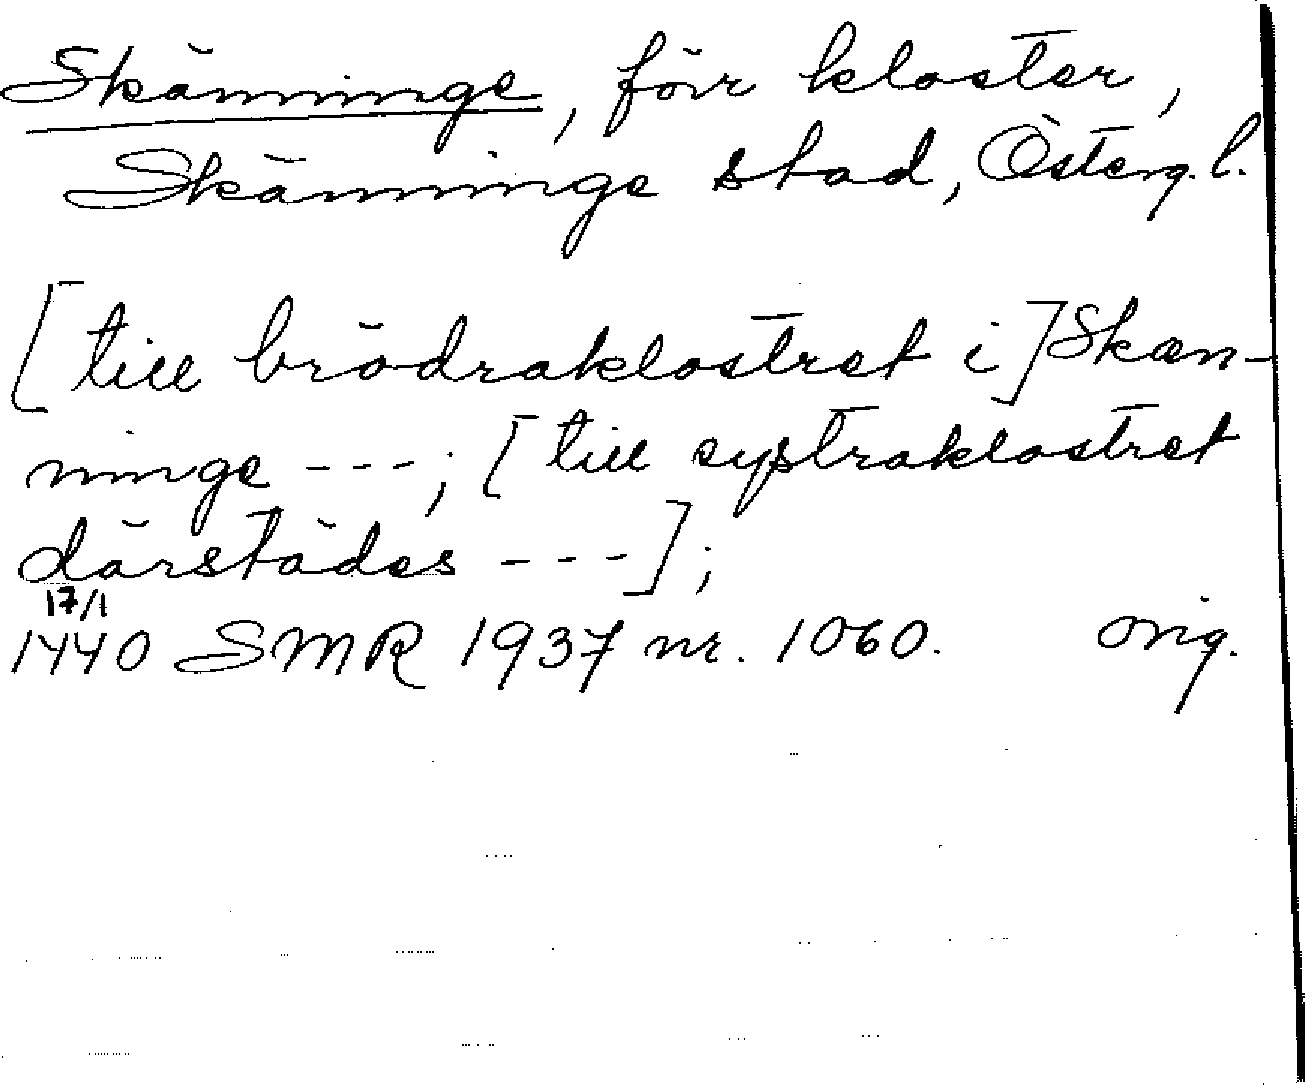 Skänninge, förr kloster,
Skänninge stad, Österg. l.
[till brödraklostret i] Skæn-
ninge ---; [till systraklostret
därstädes ---];
17/1
1440 SMR 1937 nr. 1060. orig.